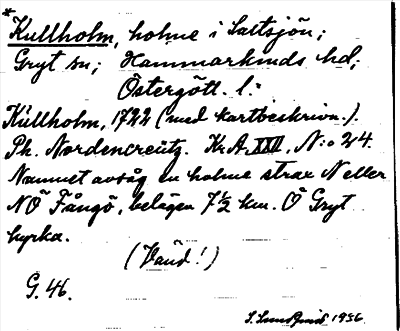 * Kullholm, holme i Saltsjön;
Gryt sn; Hammarkinds hd;
Östergötl. l.:
Kúllholm, 1722 (med kartbeskrivn.).
Ph. Nordencreütz. Kr.A. XXII, N:o 24.
Namnet avsåg en holme strax N eller
NÖ Fångö, belägen 7½ km. Ö Gryt
kyrka.
(Vänd!)
G. 46.
S. Lundqvist 1936.